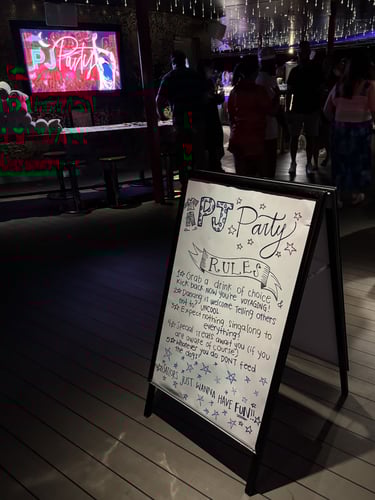 PJ Party
PJ Party
RULES
1☆ Grab a drink of choice &
kick back now you're VOYAGING!
2☆ Dancing is welcome Telling others
not to? UNCOOL
3☆ Expect nothing singalong to
everything!
4☆ Special treats await you (if you
are aware of course)
5☆ Whatever you do DON'T feed
the dogs!
JUST WANNA HAVE FUN!!